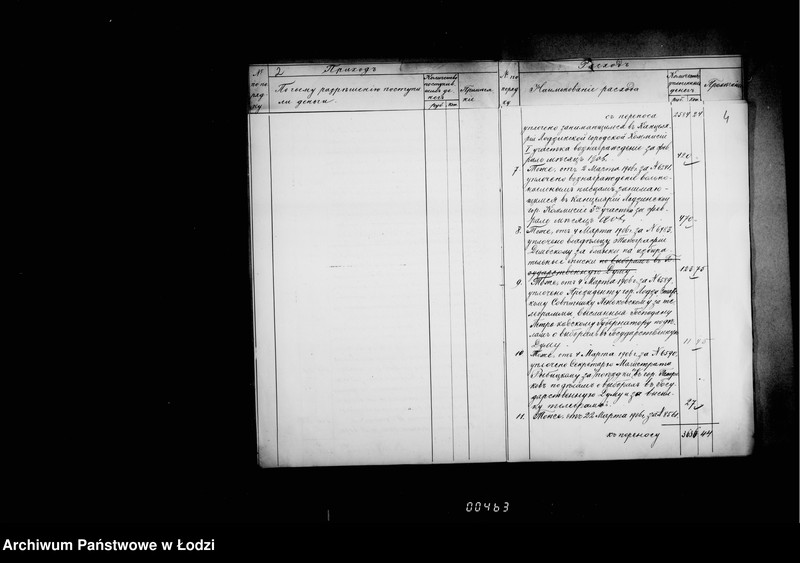 2 Приходъ
№ по по ряд ку
По чему разрѣшенію поступи
ли деньги.
Количество поступив. шихъ де негъ
руб. коп.
Примѣча
ніе
Расходъ
№ по поряд ку
Наименованіе расхода
Количест.
денегъ
руб. коп.
Примѣчаніе
4
съ переноса 2584 24
уплочено занимающимся въ Канцеля
ріи Лодзинской городской Коммисіи
I участка вознагражденіе за фев
раль мѣсяцъ 1906. 420 —
7. Тоже, отъ 2 Марта 1906 г. за №
уплочено вознагражденіе вольно-
наемнымъ писцамъ занимаю-
щимся въ Канцеляріи Лодзинской
гор. Коммисіи 5го участка за фев
раль мѣсяцъ 470 —
8. Тоже, отъ 4 Марта 1906 г. за №
уплочено владѣльцу типографіи
за бланки на избира-
тельные списки по выборамъ въ Го
сударственную Думу 123 75
9. Тоже, отъ 4 Марта 1906 г. за №
уплочено Президенту гор. Лодзи Статс
кому Совѣтнику Пеньковскому за те
леграммы высланныя Господину
Петроковскому Губернатору по дѣ
ламъ о выборахъ въ Государственную
Думу 11 75
10. Тоже, отъ 4 Марта 1906 г. за № 6590,
уплочено Секретарю Магистрата
за поѣздки въ гор. Петро
ковъ по дѣламъ о выборахъ въ Госу
дарственную Думу и за высыл
ку телеграммъ. 27 —
11. Тоже, отъ 22 Марта 1906 г. за №
къ переносу 3636 44
00463
Archiwum Państwowe w Łodzi